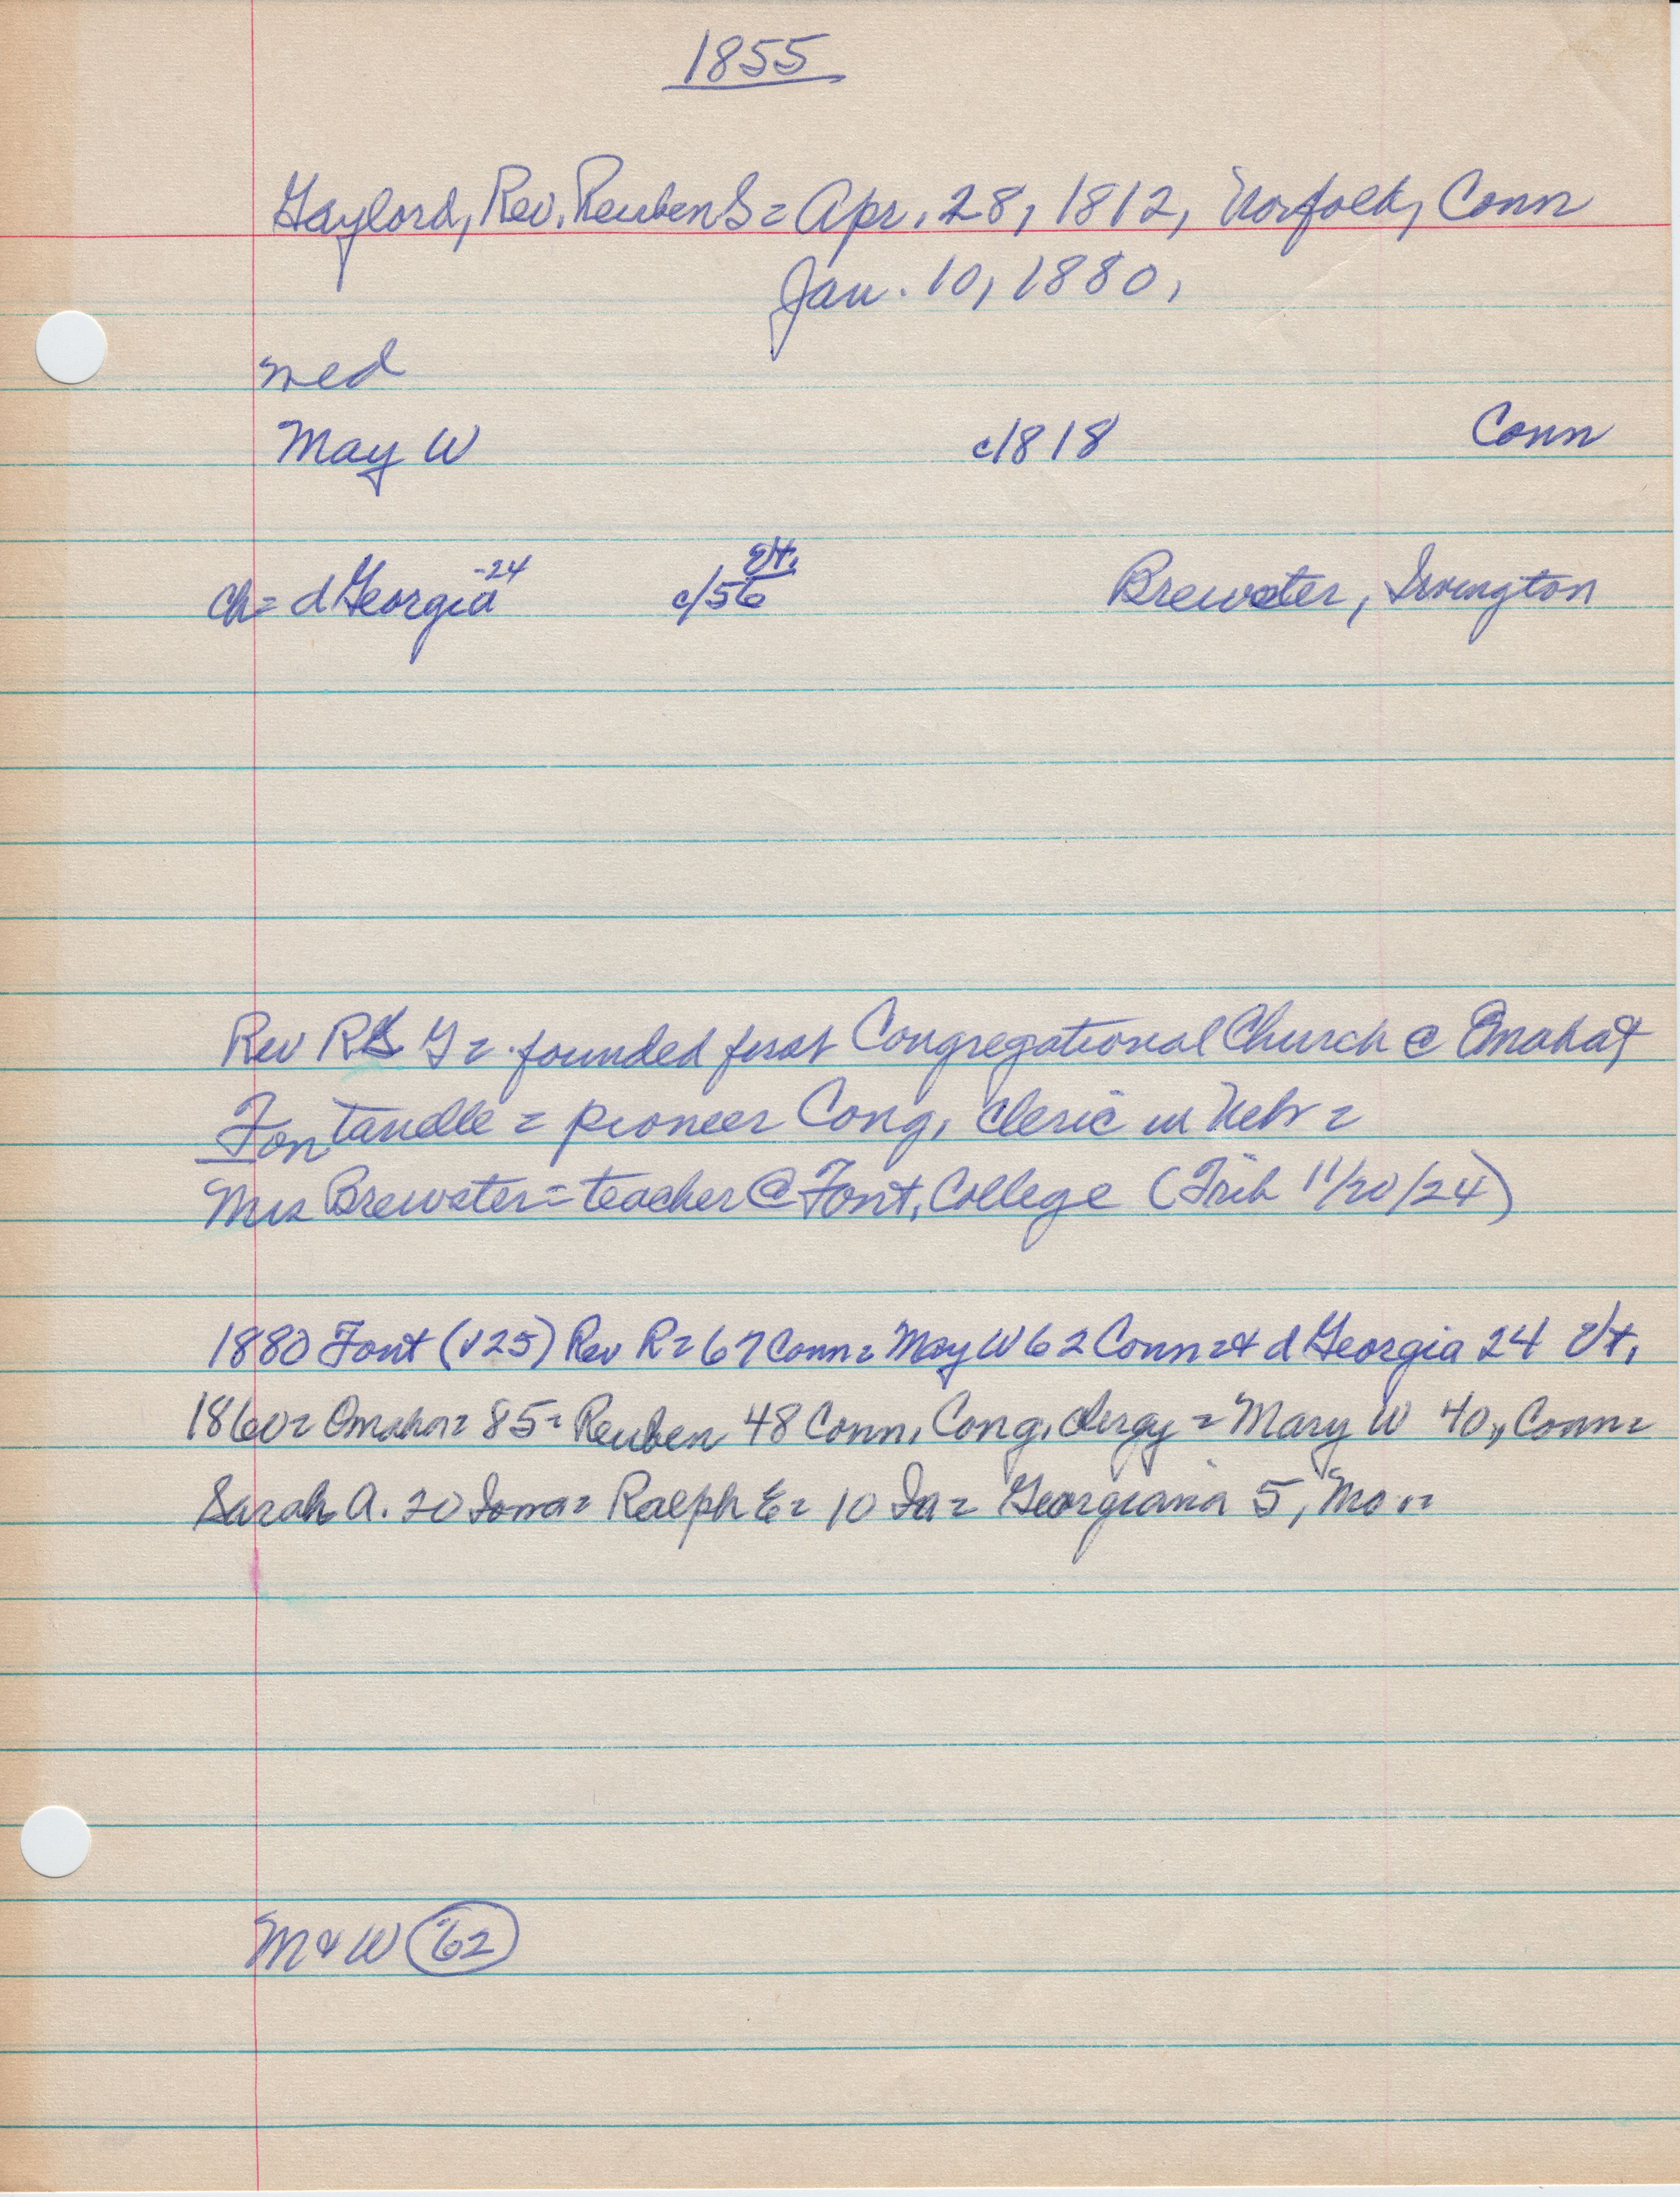 1855
Gaylord, Rev. Reuben S = Apr. 28, 1812, Norfolk, Conn
Jan. 10, 1880,
med
May W c/1818 Conn
Vt.
ch = d Georgia -24 c/56 Brewster, Irvington
Rev R G = founded first Congregational Church @ Omaha &
Fontanelle = pioneer Cong. cleric in Nebr =
Mrs Brewster = teacher @ Font. College (Trib 11/20/24)
1880 Font (v25) Rev R = 67 Conn = May W 62 Conn = & d Georgia 24 Vt.
1860 = Omaha = 85 = Reuben 48 Conn, Cong. clergy = Mary W 40, Conn =
Sarah A. 20 Iowa = Ralph E = 10 Ia = Georgiana 5, Mo
M & W 62